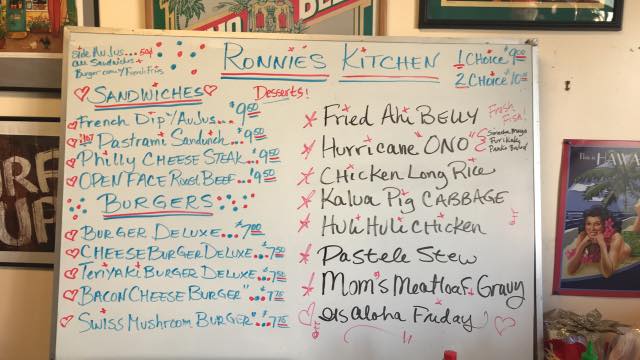 RONNIE'S KITCHEN
side Au Jus... 50¢
all Sandwichs +
Burger come w/ French Fries
1 CHOICE $9.00
2 CHOICE $10.
SANDWICHES
Desserts!
French Dip w/ Au Jus $9.50
Hot Pastrami Sandwich... $9.50
Philly CHEESE STEAK... $9.50
OPEN FACE Roast BEEF... $9.50
BURGERS
BURGER DELUXE... $7.00
CHEESE BURGER DELUXE... $7.50
Teriyaki BURGER DELUXE... $7.50
BACON CHEESE BURGER" $7.75
SWISS MUSHROOM BURGER" $7.75
Fried Ahi BELLY
Fresh Fish!
Hurricane "ONO"
Furikake
CHicken Long Rice
Kalua Pig CABBAGE
Huli Huli CHicken
Pastele Stew
Mom's Meatloaf Gravy
Aloha Friday
RF
UP
This is HAWAI